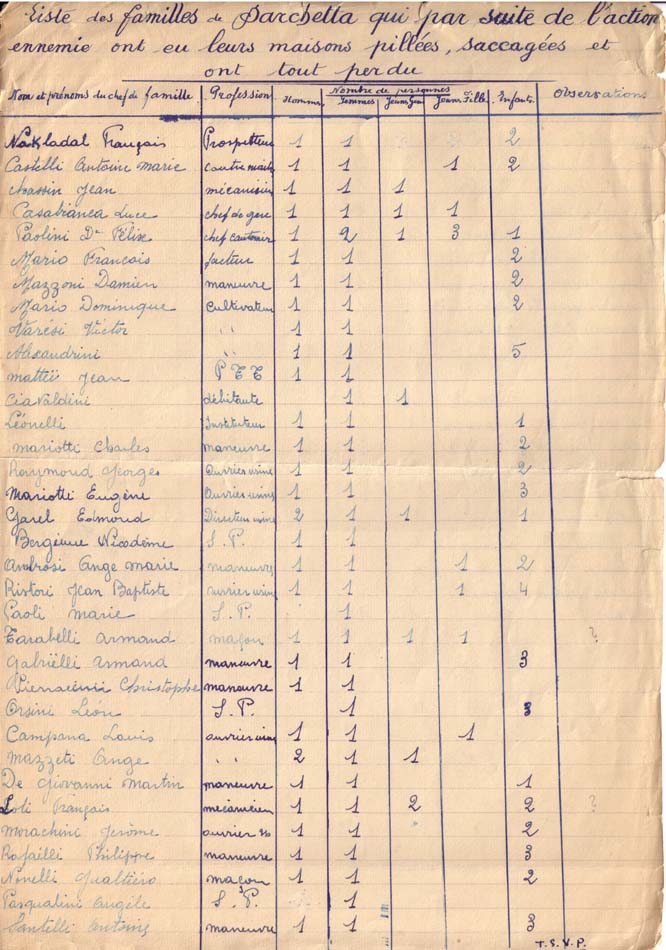 Liste des familles de Barchetta qui par suite de l'action
ennemie ont eu leurs maisons pillées, saccagées et
ont tout perdu
Nom et prénoms du chef de famille Profession Nombre de personnes Observations
Hommes Femmes Jeunes Gens Jeunes Filles Enfants
Nakladal Français Prospecteur 1 1 2
Castelli Antoine marie contremaitre 1 1 1 2
chassin Jean mécanicien 1 1 1
Casabianca Luce chef de gare 1 1 1 1
Paolini Dr Félix chef cantonnier 1 2 1 3 1
Mario François facteur 1 1 2
Mazzoni Damien maneuvre 1 1 2
Mario Dominique Cultivateur 1 1 2
Varési Victor " 1 1
Alexandrini " 1 1 5
mattei Jean P T T 1 1
Ciavaldini débitante 1 1
Léonelli Instituteur 1 1 1
mariotti Charles maneuvre 1 1 2
Raymond Georges Ouvrier usine 1 1 2
Mariotti Eugène Ouvrier usine 1 1 3
Garel Edmond Directeur usine 2 1 1 1
Nicodème S. P. 1 1
Ambrosi Ange marie maneuvre 1 1 1 2
Ristori Jean Baptiste ouvrier usine 1 1 1 4
Paoli marie S. P. 1
Tarabelli Armand maçon 1 1 1 1 ?
Gabrielli Armand maneuvre 1 1 3
Christophe maneuvre 1 1
Orsini Léon S. P. 1 3
Campana Louis ouvrier usine 1 1 1
mazzeti Ange " 2 1 1
De Giovanni Martin maneuvre 1 1 1
Loli Français mécanicien 1 1 2 2 ?
Morachini Jérôme ouvrier 1 1 2
Rafaelli Philippe maneuvre 1 1 3
Nonelli Gualtiero maçon 1 1 2
Pasqualini Angèle S. P. 1
Santelli Antoine maneuvre 1 1 3
T. S. V. P.